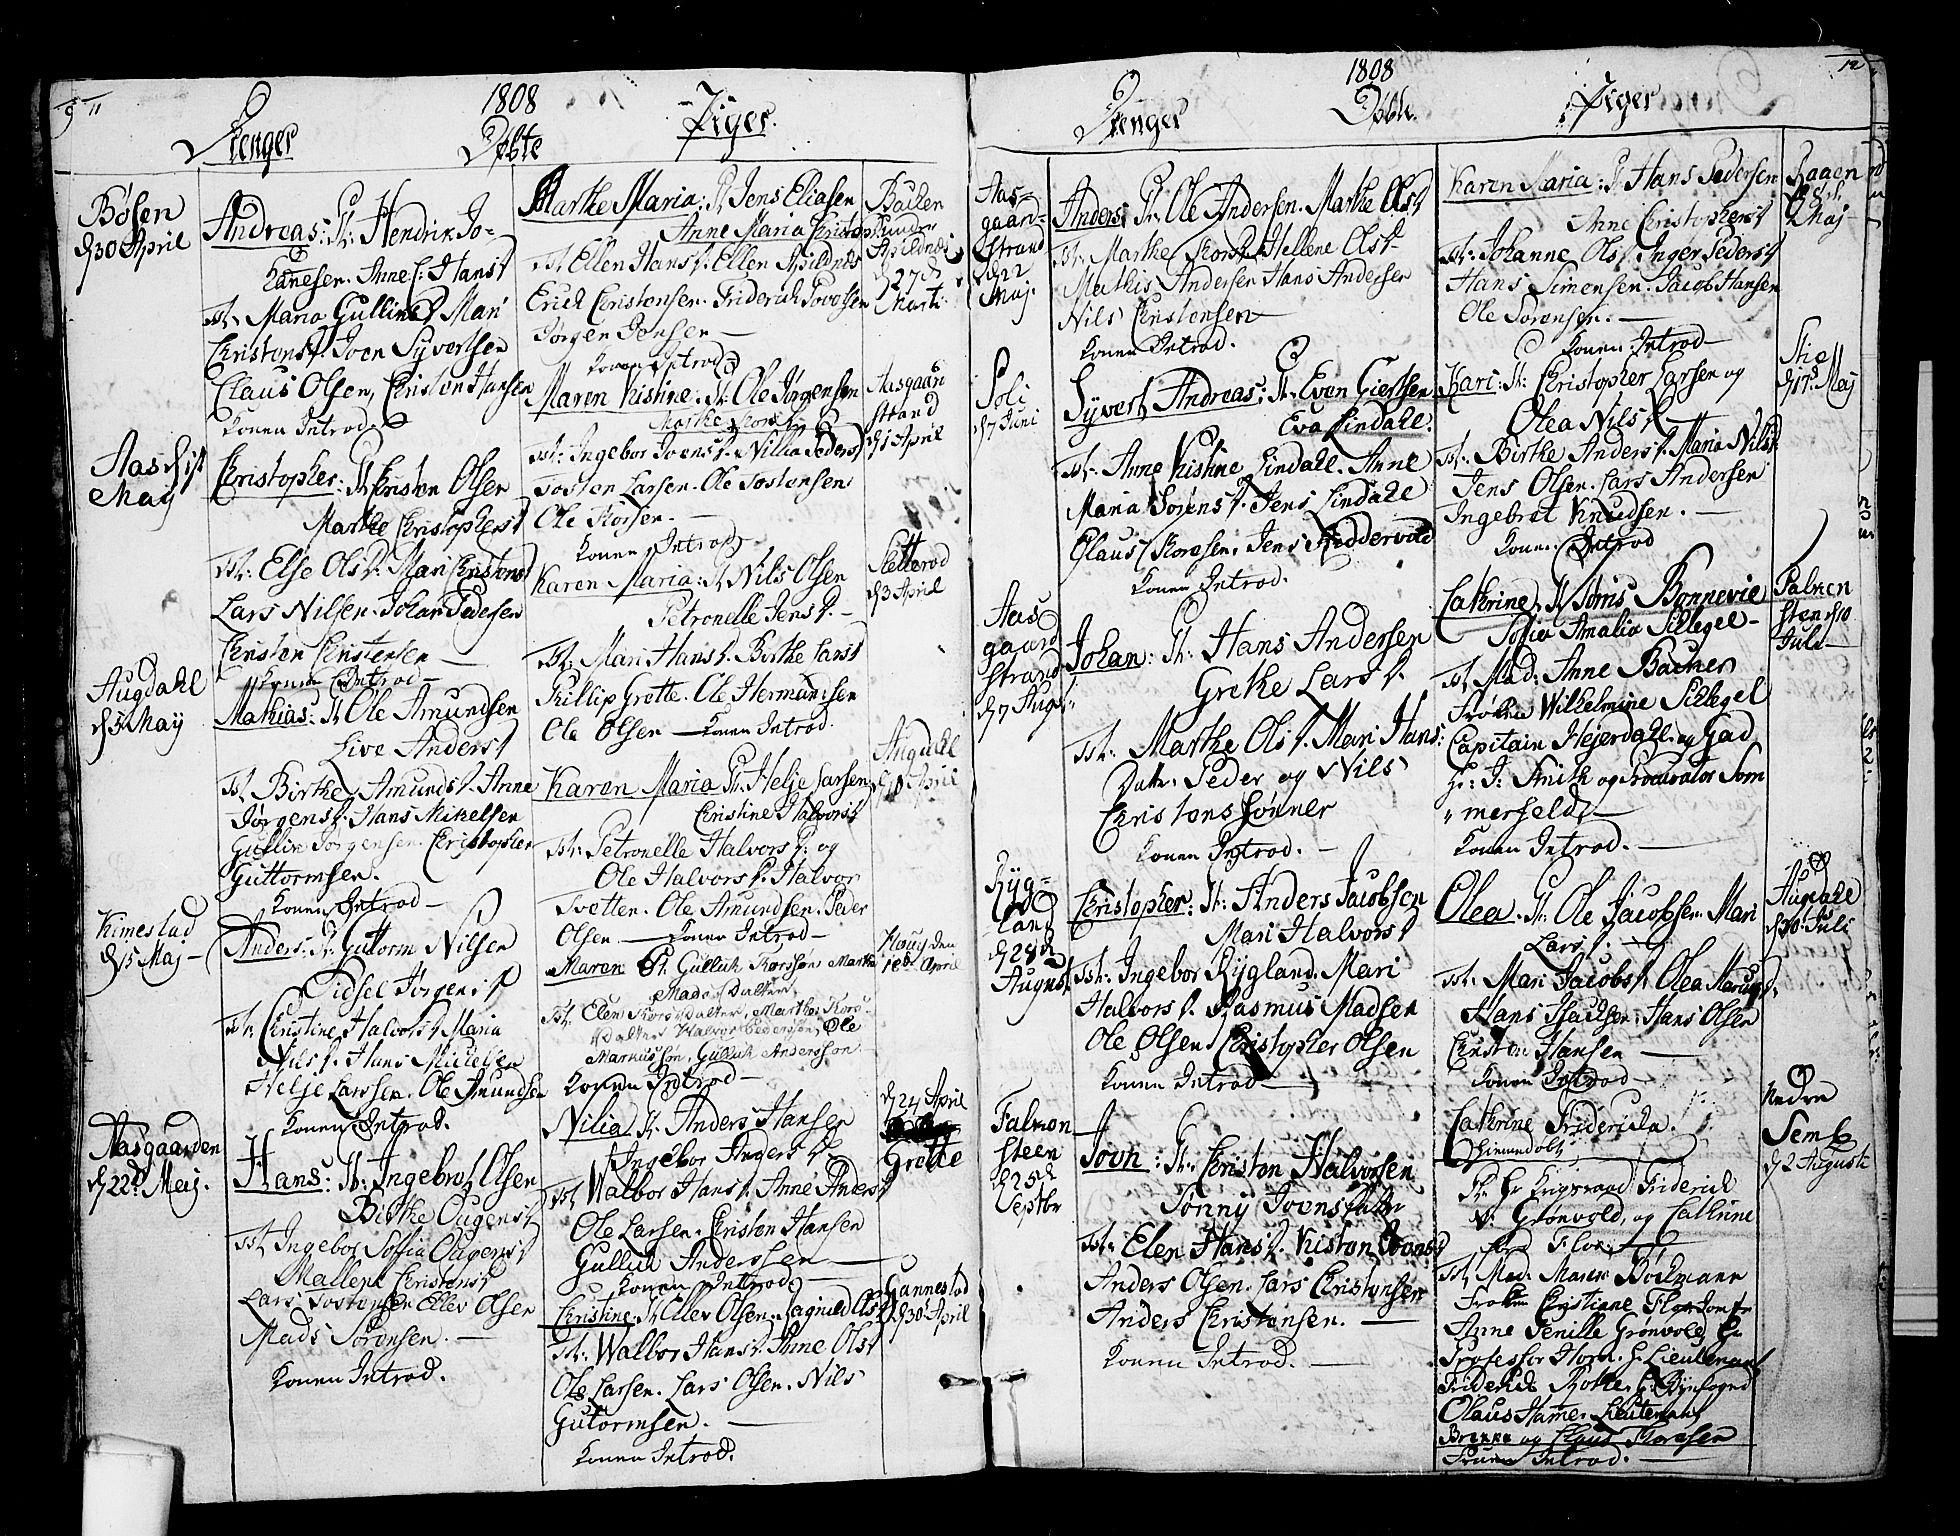 9 11
1808
Drenger
Døbte
Piger.
Bøsen
d 30 April
Andreas: Fr: Hendrik Jo-
hanesen. Anne C: Hans D
Tst: Maria Gullina Mari
Christens D. Joen Syvertsen
Claus Olsen, Christen Hansen
Konen Introd.
Aas d 1st
May
Christopher: Fr Kristen Olsen
Marthe Christophers D
Tst: Else Ols D. Mari Christens D
Lars Nilsen. Johan Pedersen
Christen Christensen —
Konen Introd —
Augdahl
d 5 May
Mathias: Fr Ole Amundsen
Live Anders D
Tst Birthe Amunds D. Anne
Jørgens D. Hans Mikelsen
Gullin Jørgensen. Christopher
Guttormsen.
Konen Introd —
Kimestad
d 15 Maj —
Anders: Fr: Guttorm Nilsen
Sidsel Jørgens D
Tst: Christine Halvors D Maria
Nils D. Hans Mickelsen
Helje Larssen. Ole Amundsen
Konen Introd.
Aasgaarden
d 22d Maj.
Hans: Fr: Ingebret Olsen
Birthe Ougens D
Tst Ingebor Soffia Ougens D
Mallene Christens D
Lars Tostensen Ellev Olsen
Mads Sørensen. —
Konen Introd.
Marthe Maria: Fr Jens Eliasen
Anne Maria Christophers D
Tst Ellen Hans D. Ellen Apildnæs
Erich Christensen. Friderich Tovelsen
Jørgen Jensen —
Konen Introd —
Bachen
under
Apildnæs
d 27d
Marti
Maren Kistine: Fr: Ole Jørgensen
Marthe Kors D
Tst: Ingebor Joens D. Nillia Peders D
Tosten Larsen. Ole Tostensen
Ole Korsen. —
Konen Introd
Aasgaard
strand
d 1 April
Karen Maria: Fr Nils Olsen
Petronelle Jens D. —
Tst: Mari Hans D. Birthe Lars D
Phillip Grette. Ole Hermansen
Ole Olsen — Konen Introd.
Sletterød
d 3 April
Karen Maria Fr: Helje Larsen
Christine Halvors D
Tst: Petronelle Halvors D. og
Ole Halvors D. Halvor
Tvetten. Ole Amundsen. Peder
Olsen. — Konen Introd —
Augdahl
d 10 April
Maren Fr. Gullich Korssøn Marthe
Mads Datter
Tst. Elen Korsdatter, Marthe Kors-
datter Halvor Pedersøn, Ole
Markussøn, Gullich Anderssøn
Konen Introd —
Houg den
18de April
Nilia Fr. Anders Hansen
Ingebor Anders D. —
Tst Walbor Hans D. Anne Anders D
Ole Larsen. Christen Hansen
Gullich Anderssen —
Konen Introd. —
d 24 April
Grette
Christine. Fr Ellev Olsen. Ragnild Ols D
Tst: Walbor Hans D. Anne Ols D
Ole Larsen. Lars Olsen. Nils
Gutormsen. —
Konen Introd.
Gannestad
d 30 April
12
1808
Drenger
Døbte.
Piger
Aas-
gaard-
strand
d 22
Maj.
Anders Fr. Ole Andersen. Marthe Ols D
Tst: Marthe Kors D. Hellene Ols D
Mathis Andersen Hans Andersen
Nils Christensen —
Konen Introd.
Soli
d 7 Juni
Syvert Andreas: Fr. Even Giertsen
Eva Lindahl.
Tst: Anne Kistine Lindahl. Anne
Maria Sørens D. Jens Lindahl
Claus Thoresen. Jens Heddervold
Konen Introd.
Aas
gaard
strand
d 7 Augst
Johan: Fr: Hans Andersen
Grethe Lars D.
Tst: Marthe Ols D. Mari Hans:
Datr. Peder og Nils
Christensønner
Konen Introd. —
Ryg-
land
d 28d
August
Christopher: Fr: Anders Jacobsen
Mari Halvors D
Tst: Ingebor Rygland. Mari
Halvors D. Rasmus Madsen
Ole Olsen Christopher Olsen
Konen Introd —
Falken
steen
d 25d
Septbr
Joen: Fr. Christen Halvorsen
Sønny Joensdatter
Tst: Elen Hans D. Kisten Joens D
Anders Olsen. Lars Christensen
Anders Christensen. —
Konen Introd. —
Karen Maria: Fr Hans Pedersen
Anne Christophers D
Tst: Johanne Ols D Inger Peders D
Hans Simensen. Jacob Hansen
Ole Sørensen. —
Konen Introd —
Raaen
d
Maj —
Kari: Fr: Christopher Larsen og
Olea Nils D —
Tst: Birthe Anders D. Maria Nils D
Jens Olsen. Lars Andersen
Ingebret Knudsen. —
Konen Introd
Stie
d 17d Maj
Cathrine. Fr Joris Bonnevie
Sofia Amalia Sillegel —
Tst Mad: Anne Bacher
Frøken Wilhelmine Sillegel
Capitain Hejerdahl. og Gad
Hr. J: Smith og Procurator Som
merfeld. —
Konen Introd. —
Falken
sten d 10
Juli —
Olea. Fr. Ole Jacobsen. Mari
Lars D. —
Tst: Mari Jacobs D. Olea
Hans Isachsen. Hans Olsen
Christen Hansen —
Konen Introd —
Augdahl
d 30 Juli
Cathrine Friderica.
Hiemdøbt
Fr: Hr Krigsraad Friderich
v: Grønvold, og Cathrine
Flor.
Tst Mad: Maren Bøckmann
Frøken Christiane Flor Jomfr
Anne Pernille Grønvold, Hr
Professor Horn. H: Lieutenant
Friderich Hr: Bynfogud
Claus Hamer. Lieutenant
og Claus Thoresen
Fruen Introd. —
Nedre
Sem
d 2 Augusti